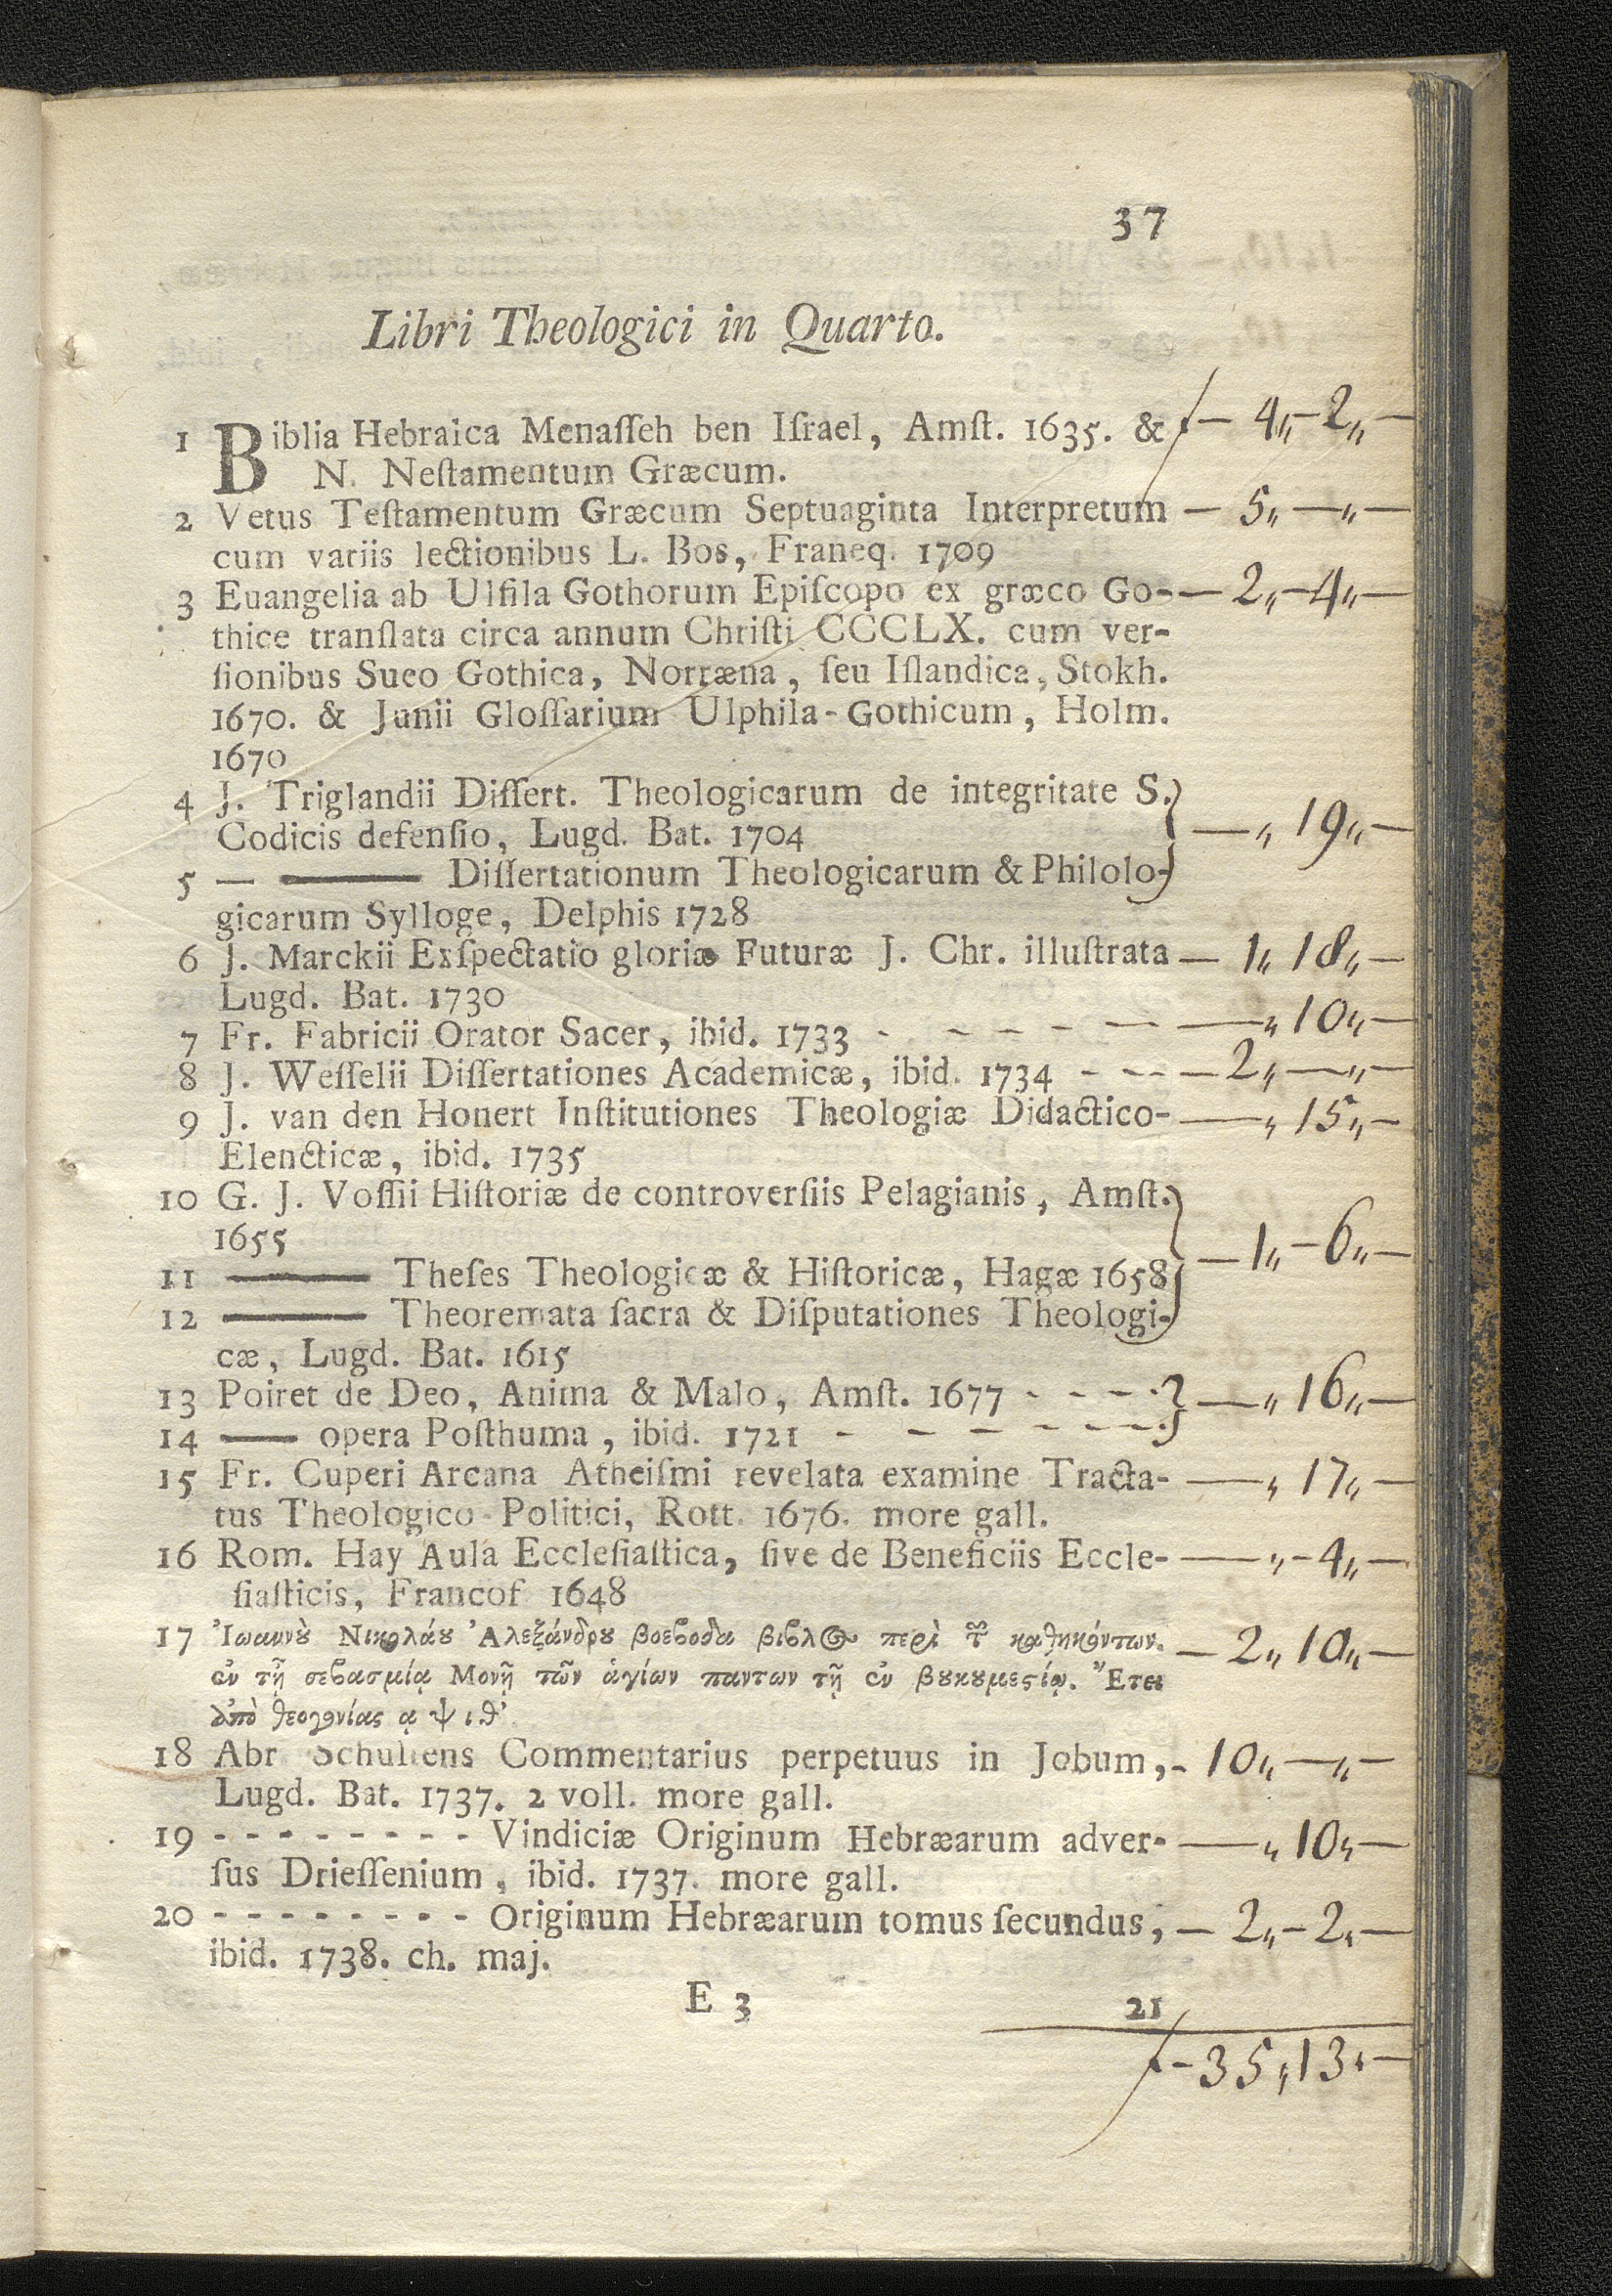 37
Libri Theologici in Quarto.
1 Biblia Hebraica Menaſſeh ben Iſrael, Amſt. 1635. & ƒ— 4„—2„—
N. Neſtamentum Græcum.
2 Vetus Teſtamentum Græcum Septuaginta Interpretum — 5„—„—
cum variis lectionibus L. Bos, Franeq. 1709
3 Euangelia ab Ulfila Gothorum Epiſcopo ex græco Go- — 2„—4„—
thice tranſlata circa annum Chriſti CCCLX. cum ver-
ſionibus Sueo Gothica, Norræna, ſeu Iſlandica, Stokh.
1670. & Junii Gloſſarium Ulphila-Gothicum, Holm.
1670
4 J. Triglandii Diſſert. Theologicarum de integritate S.
Codicis defenſio, Lugd. Bat. 1704 —„ 19„—
5 — —— Diſſertationum Theologicarum & Philolo-
gicarum Sylloge, Delphis 1728
6 J. Marckii Exſpectatio gloriæ Futuræ J. Chr. illuſtrata — 1„ 18„—
Lugd. Bat. 1730
7 Fr. Fabricii Orator Sacer, ibid. 1733 - - - - - - —„ 10„—
8 J. Weſſelii Diſſertationes Academicæ, ibid. 1734 - - - — 2„—„—
9 J. van den Honert Inſtitutiones Theologiæ Didactico- —„ 15„—
Elencticæ, ibid. 1735
10 G. J. Voſſii Hiſtoriæ de controverſiis Pelagianis, Amſt.
1655 — 1„—6„—
11 —— Theſes Theologicæ & Hiſtoricæ, Hagæ 1658
12 —— Theoremata ſacra & Diſputationes Theologi-
cæ, Lugd. Bat. 1615
13 Poiret de Deo, Anima & Malo, Amſt. 1677 - - - - —„ 16„—
14 —— opera Poſthuma, ibid. 1721 - - - - - -
15 Fr. Cuperi Arcana Atheiſmi revelata examine Tracta- —„ 17„—
tus Theologico-Politici, Rott. 1676. more gall.
16 Rom. Hay Aula Eccleſiaſtica, ſive de Beneficiis Eccle- —„—4„—
ſiaſticis, Francof 1648
17 Ἰωαννȣ̀ Νικολάȣ Ἀλεξάνδρȣ βοεβοδα βιβλ@ περὶ τ̃ καθηκόντων. — 2„ 10„—
ἐν τῇ σεβασμίᾳ Μονῇ τῶν ἁγίων παντων τῇ ἐν βȣκȣρεςίῳ. Ἔτει
ἀπὸ θεογονίας α ψ ι θ'
18 Abr Schultens Commentarius perpetuus in Jobum, - 10„—„—
Lugd. Bat. 1737. 2 voll. more gall.
19 - - - - - - - - - Vindiciæ Originum Hebræarum adver- —„ 10„—
ſus Drieſſenium, ibid. 1737. more gall.
20 - - - - - - - - - Originum Hebræarum tomus ſecundus, — 2„—2„—
ibid. 1738. ch. maj.
E 3 21
ƒ—35„13„—